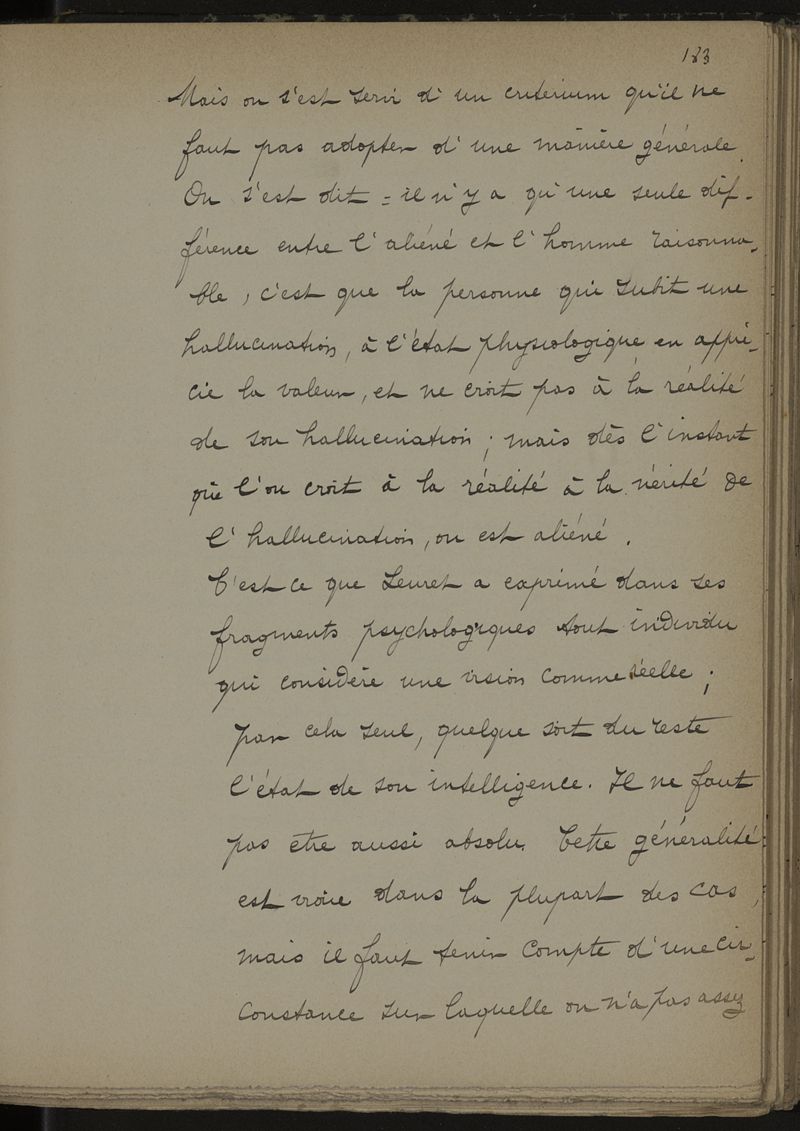 183
Mais on s'est servi d'un criterium qu'il ne
faut pas adopter d'une manière générale.
On s'est dit = il n'y a qu'une seule dif-
férence entre l'aliéné et l'homme raisonna-
ble, c'est que la personne qui subit une
hallucination, à l'état physiologique en appré-
cie la valeur, et ne croit pas à la réalité
de son hallucination; mais dès l'instant
que l'on croit à la réalité à la vérité de
l'hallucination, on est aliéné.
C'est ce que Leuret a exprimé dans ses
fragments psychologiques tout individu
qui considère une vision comme réelle;
par cela seul, quelque soit du reste
l'état de son intelligence. Il ne faut
pas etre aussi absolu. Cette généralité
est vraie dans la plupart des cas,
mais il faut tenir compte d'une cir-
constance sur laquelle on n'a pas assez